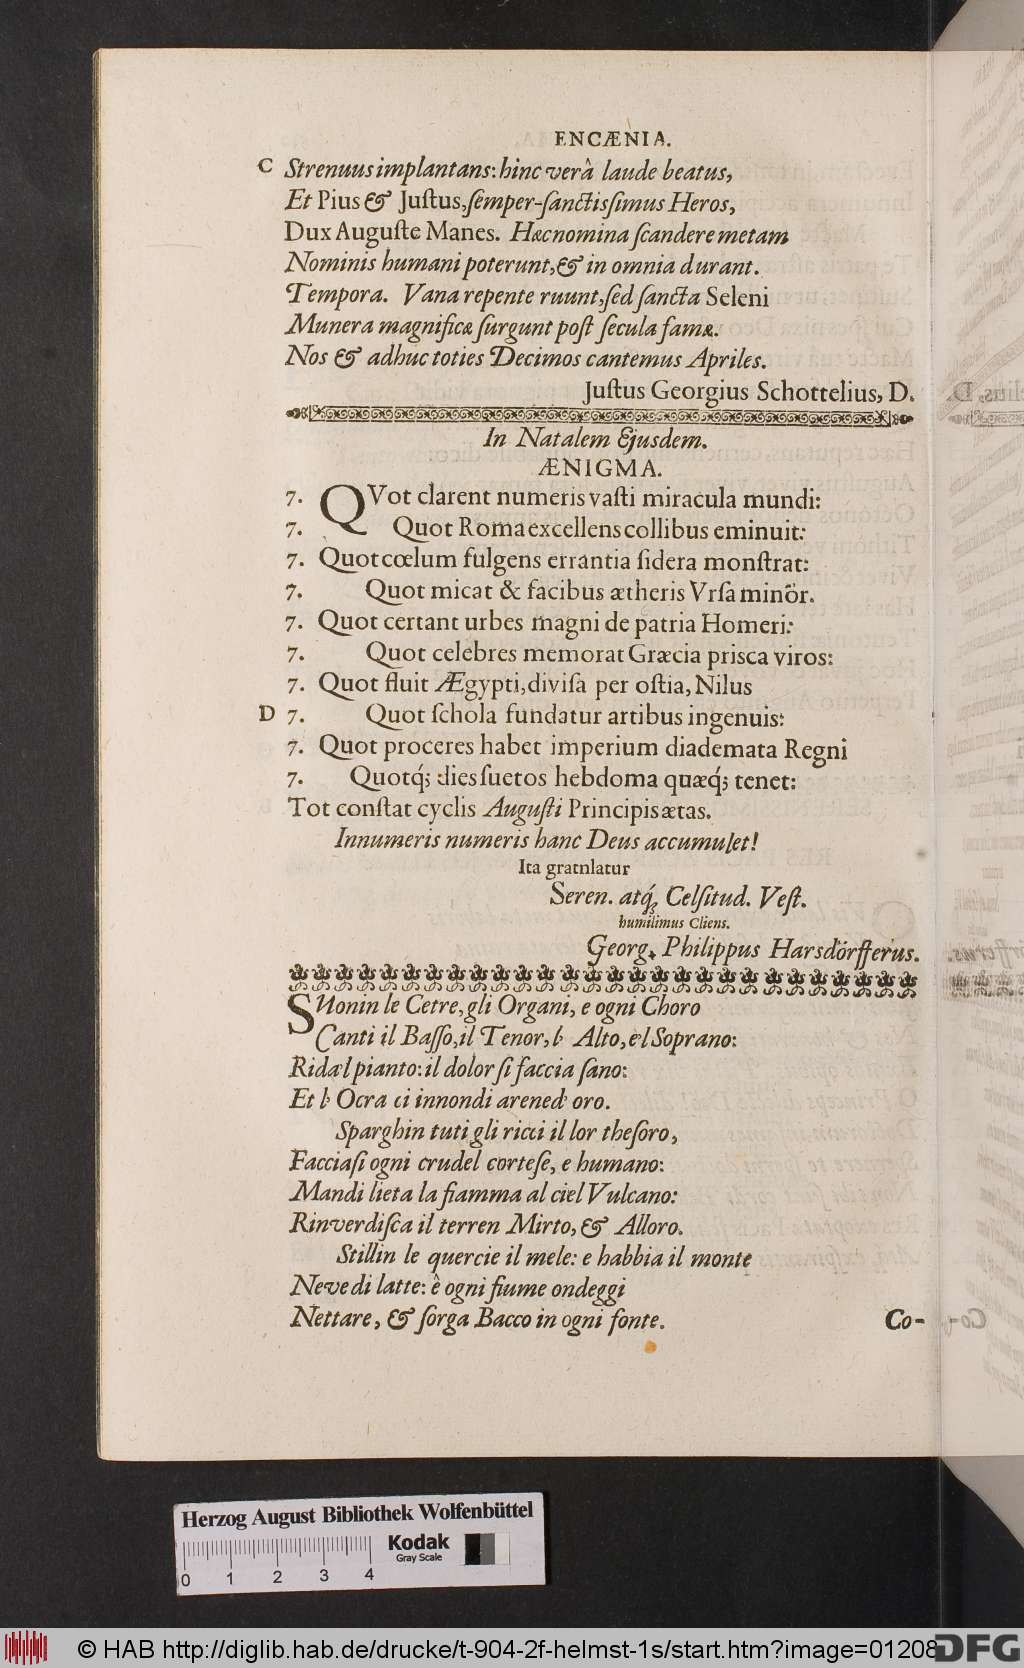 ENCÆNIA.
C Strenuus implantans: hinc verâ laude beatus,
Et Pius & Juſtus, ſemper-ſanctisſimus Heros,
Dux Auguſte Manes. Hæc nomina ſcandere metam
Nominis humani poterunt, & in omnia durant.
Tempora. Vana repente ruunt, ſed ſancta Seleni
Munera magnificæ ſurgunt poſt ſecula famæ.
Nos & adhuc toties Decimos cantemus Apriles.
Juſtus Georgius Schottelius, D.
In Natalem Ejusdem.
ÆNIGMA.
7. QVot clarent numeris vaſti miracula mundi:
7. Quot Roma excellens collibus eminuit:
7. Quot cœlum fulgens errantia ſidera monſtrat:
7. Quot micat & facibus ætheris Vrſa minor.
7. Quot certant urbes magni de patria Homeri:
7. Quot celebres memorat Græcia prisca viros:
7. Quot fluit Ægypti, diviſa per oſtia, Nilus
D 7. Quot ſchola fundatur artibus ingenuis:
7. Quot proceres habet imperium diademata Regni
7. Quotq́; dies ſuetos hebdoma quæq́; tenet:
Tot conſtat cyclis Auguſti Principis ætas.
Innumeris numeris hanc Deus accumulet!
Ita gratnlatur
Seren. atq́; Celſitud. Veſt.
humilimus Cliens.
Georg. Philippus Harsdörfferus.
SUonin le Cetre, gli Organi, e ogni Choro
Canti il Baſſo, il Tenor, l' Alto, e'l Soprano:
Rida'l pianto: il dolor ſi faccia ſano:
Et l' Ocra ci innondi arene d' oro.
Sparghin tuti gli ricci il lor theſoro,
Facciaſi ogni crudel corteſe, e humano:
Mandi lieta la fiamma al ciel Vulcano:
Rinverdiſca il terren Mirto, & Alloro.
Stillin le quercie il mele: e habbia il monte
Neve di latte: è ogni fiume ondeggi
Nettare, & ſorga Bacco in ogni fonte.
Co-
Herzog August Bibliothek Wolfenbüttel
Kodak
Gray Scale
0 1 2 3 4
© HAB http://diglib.hab.de/drucke/t-904-2f-helmst-1s/start.htm?image=01208
DFG